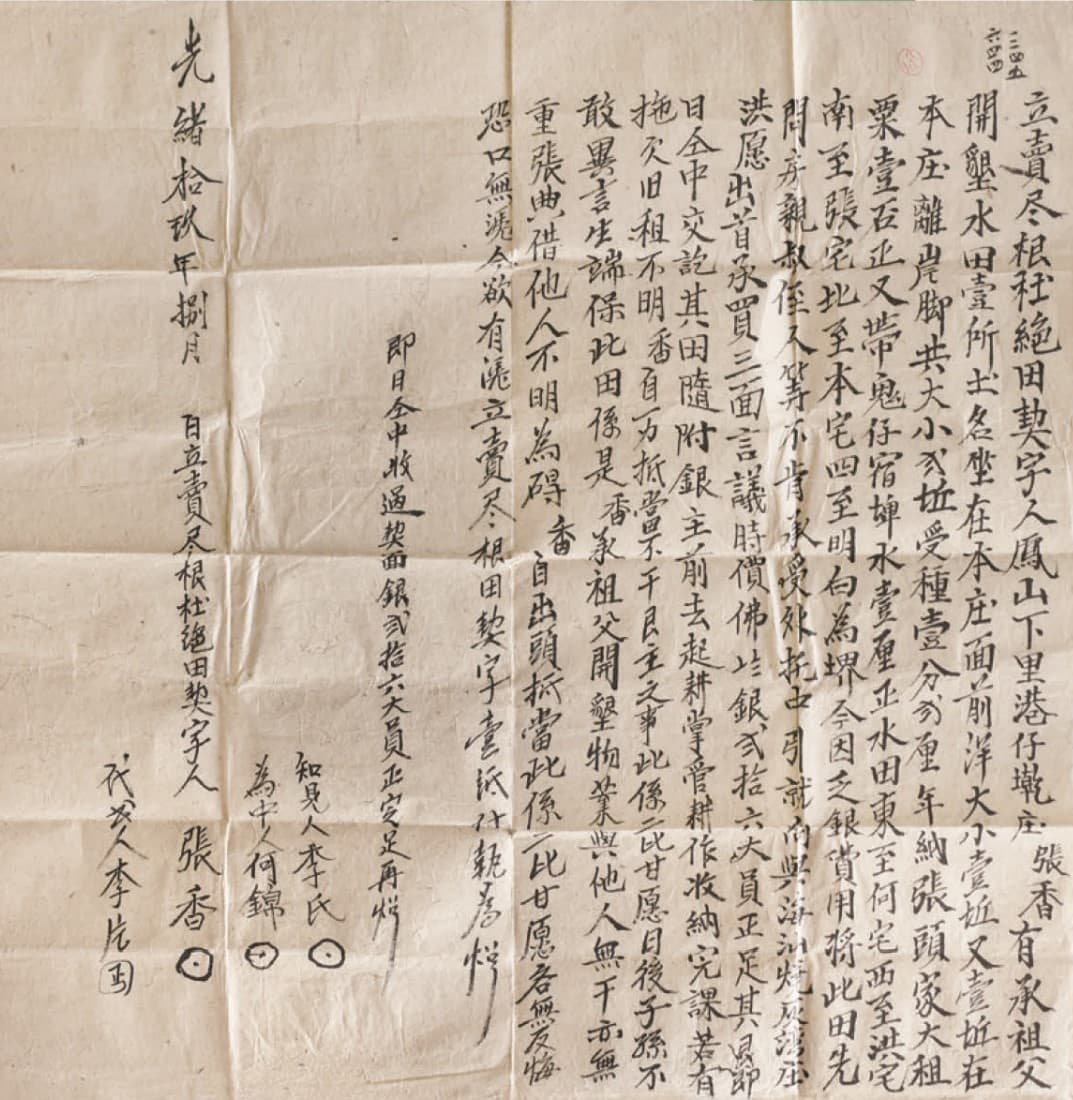 一二四五
六四四
立賣尽根杜絶田契字人鳳山下里港仔墘庄張香有承祖父
開墾水田壹所土名坐在本庄面前洋大小壹坵又壹坵在
本庄離崁脚共大小弍坵受種壹分弍厘年納張頭家大租
粟壹石正又帶鬼仔宿埤水壹厘正水田東至何宅西至洪宅
南至張宅北至本宅四至明白為堺今因乏銀費用將此田先
問房親叔侄人等不肯承受外托中引就向與海汕燒灰湾庄
洪愿出首承買三面言議時價佛銀弍拾六大員正足其艮即
日仝中交訖其田隨附銀主前去起耕掌管耕作收納完課若有
拖欠旧租不明香自力抵當不干艮主之事此係二比甘愿日後子孫不
敢異言生端保此田係是香承祖父開墾物業與他人無干亦無
重張典借他人不明為碍香自出頭抵當此係二比甘愿各無反悔
恐口無凴今欲有凴立賣尽根田契字壹紙付執為炤
即日仝中收過契面銀弍拾六大員正完足再炤
知見人李氏
為中人何錦
光緒拾玖年捌月 日立賣尽根杜絶田契字人 張香
代書人李